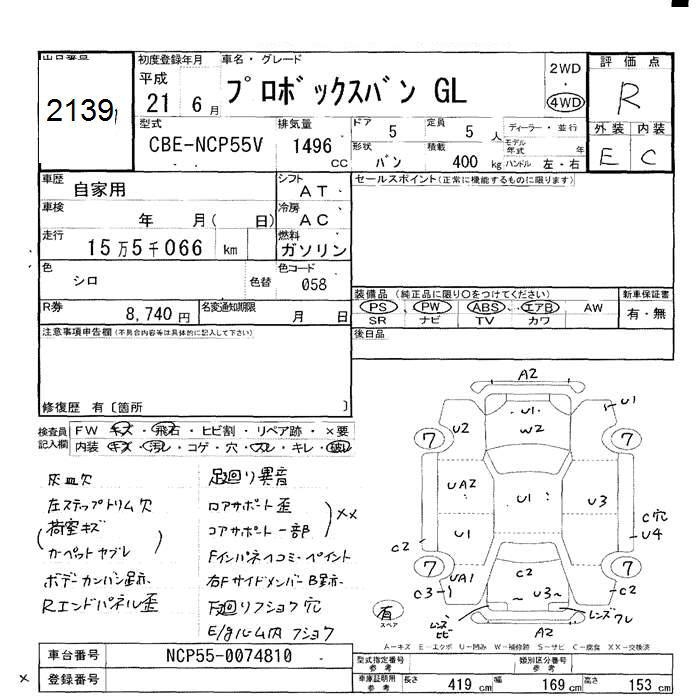 出品番号
2139
初度登録年月
平成
21年 6月
車名・グレード
プロボックスバン GL
2WD
・
4WD
評価点
R
外装 内装
E C
型式
CBE-NCP55V
排気量
1496
CC
ドア
5
定員
5 人
形状
バン
積載
400 kg
ディーラー・並行
モデル年式 年
ハンドル 左・右
車歴
自家用
シフト
AT
セールスポイント(正常に機能するものに限ります)
車検
年 月( 日)
冷房
AC
走行
15万5千066 km
燃料
ガソリン
色
シロ
色替
色コード
058
R券
8,740円
名変通知期限
月 日
装備品(純正品に限り○をつけてください)
PS・PW・ABS・エアB・AW
SR ナビ TV カワ
新車保証書
有・無
後日品
注意事項申告欄(不具合内容等は具体的に記入して下さい)
修復歴 有〔箇所 〕
検査員記入欄
FW キズ・飛石・ヒビ割・リペア跡・×要
内装 キズ・汚レ・コゲ・穴・スレ・キレ・破レ
灰皿欠
左ステップトリム欠
(荷室キズ
カーペットヤブレ)
ボデーカンバン跡
Rエンドパネル歪
足廻り異音
ロアサポート歪
コアサポート一部
)××
Fインパネヘコミ・ペイント
右FサイドメンバーB跡
下廻りフショク穴
E/gルーム内フショク
A2
U1
W2
U2
U1
7
7
UA2
U1
U3
U1
C穴
U4
C2
7
7
UA1
C3
C2
U3
C2
レンズヒビ
レンズワレ
A2
有
スペア
A-キズ E-エクボ U-凹み W-補修跡 S-サビ C-腐食 XX-交換済
車台番号
NCP55-0074810
登録番号
×
型式指定番号
参考
類別区分番号
参考
車庫証明用
参考
長さ 419 cm
幅 169 cm
高さ 153 cm